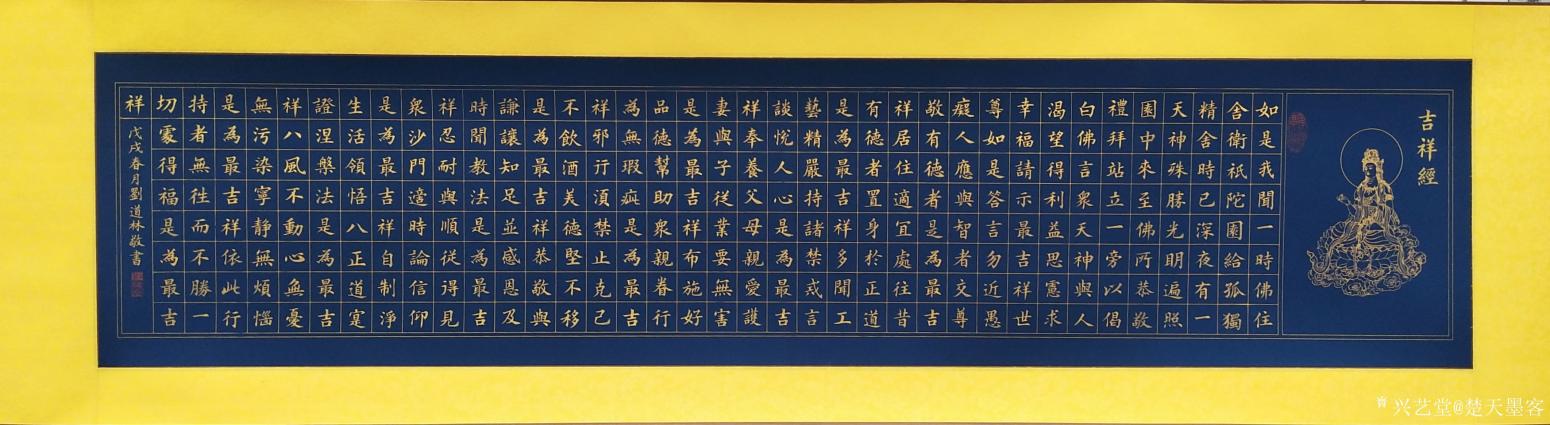 吉祥經
如是我聞一時佛住
舍衛祇陀園給孤獨
精舍時已深夜有一
天神殊勝光明遍照
園中來至佛所恭敬
禮拜站立一旁以偈
白佛言眾天神與人
渴望得利益思慮求
幸福請示最吉祥世
尊如是答言勿近愚
癡人應與智者交尊
敬有德者是為最吉
祥居住適宜處往昔
有德者置身於正道
是為最吉祥多聞工
藝精嚴持諸禁戒言
談悅人心是為最吉
祥奉養父母親愛護
妻與子從業要無害
是為最吉祥布施好
品德幫助眾親眷行
為無瑕疵是為最吉
祥邪行須禁止克己
不飲酒美德堅不移
是為最吉祥恭敬與
謙讓知足並感恩及
時聞教法是為最吉
祥忍耐與順從得見
眾沙門適時論信仰
是為最吉祥自制淨
生活領悟八正道寔
證涅槃法是為最吉
祥八風不動心無憂
無污染寧靜無煩惱
是為最吉祥依此行
持者無往而不勝一
切處得福是為最吉
祥
戊戌春月劉道林敬書
兴艺堂@楚天墨客